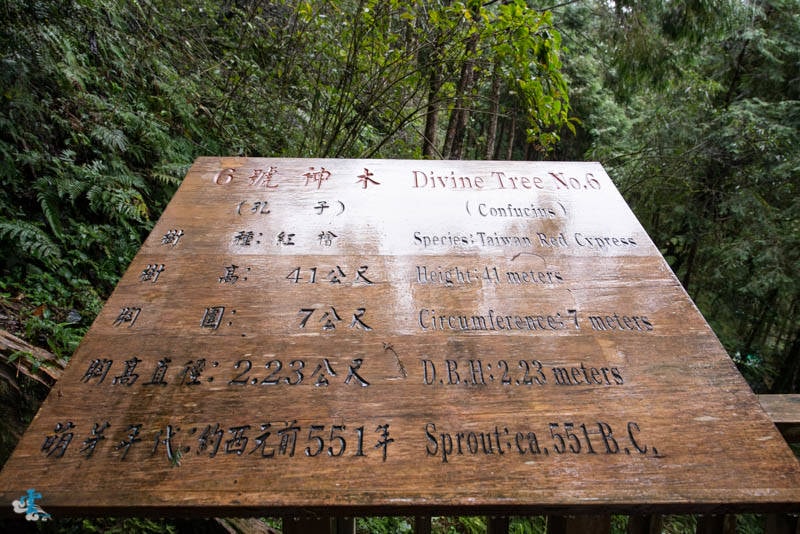 6號神木 Divine Tree No.6
(孔子) (Confucius)
樹種:紅檜 Species:Taiwan Red Cypress
樹高:41公尺 Height:41 meters
胸圍:7公尺 Circumference:7 meters
胸高直徑:2.23公尺 D.B.H:2.23 meters
萌芽年代:約西元前551年 Sprout:ca.551B.C.